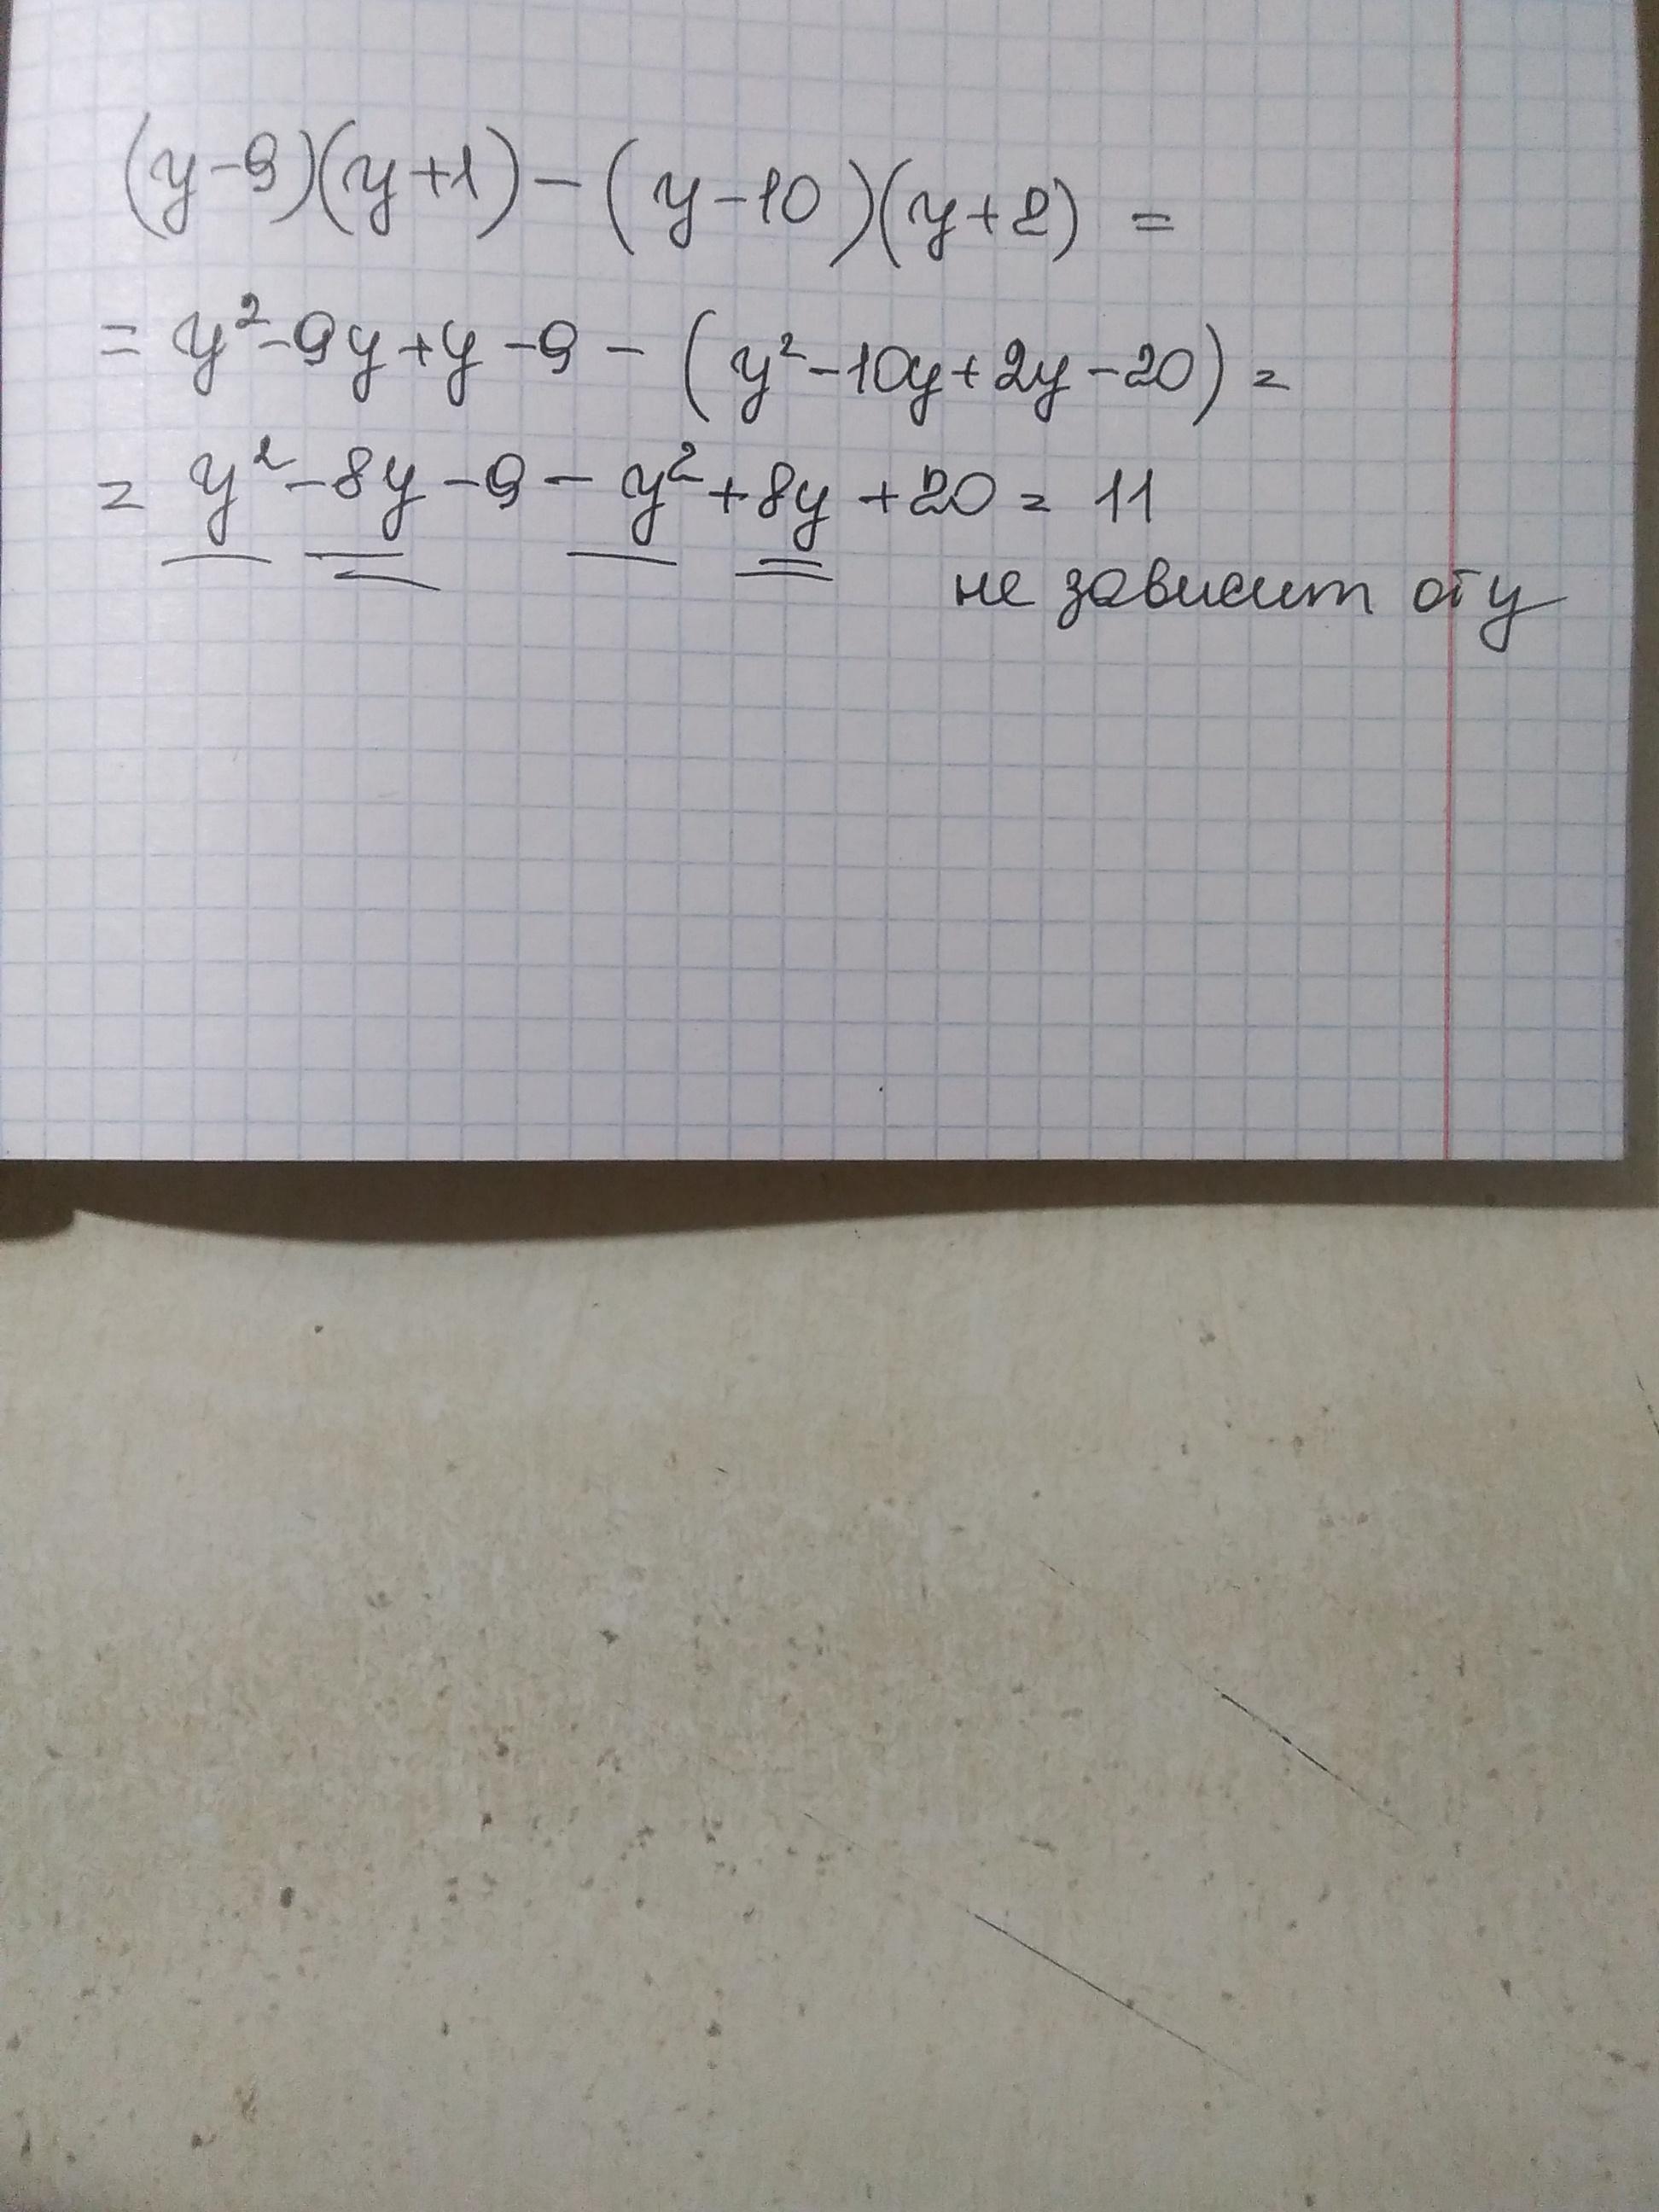 (y-9)(y+1)-(y-10)(y+2) =
= y²-9y+y-9-(y²-10y+2y-20)=
= y²-8y-9-y²+8y+20=11
не зависит от y